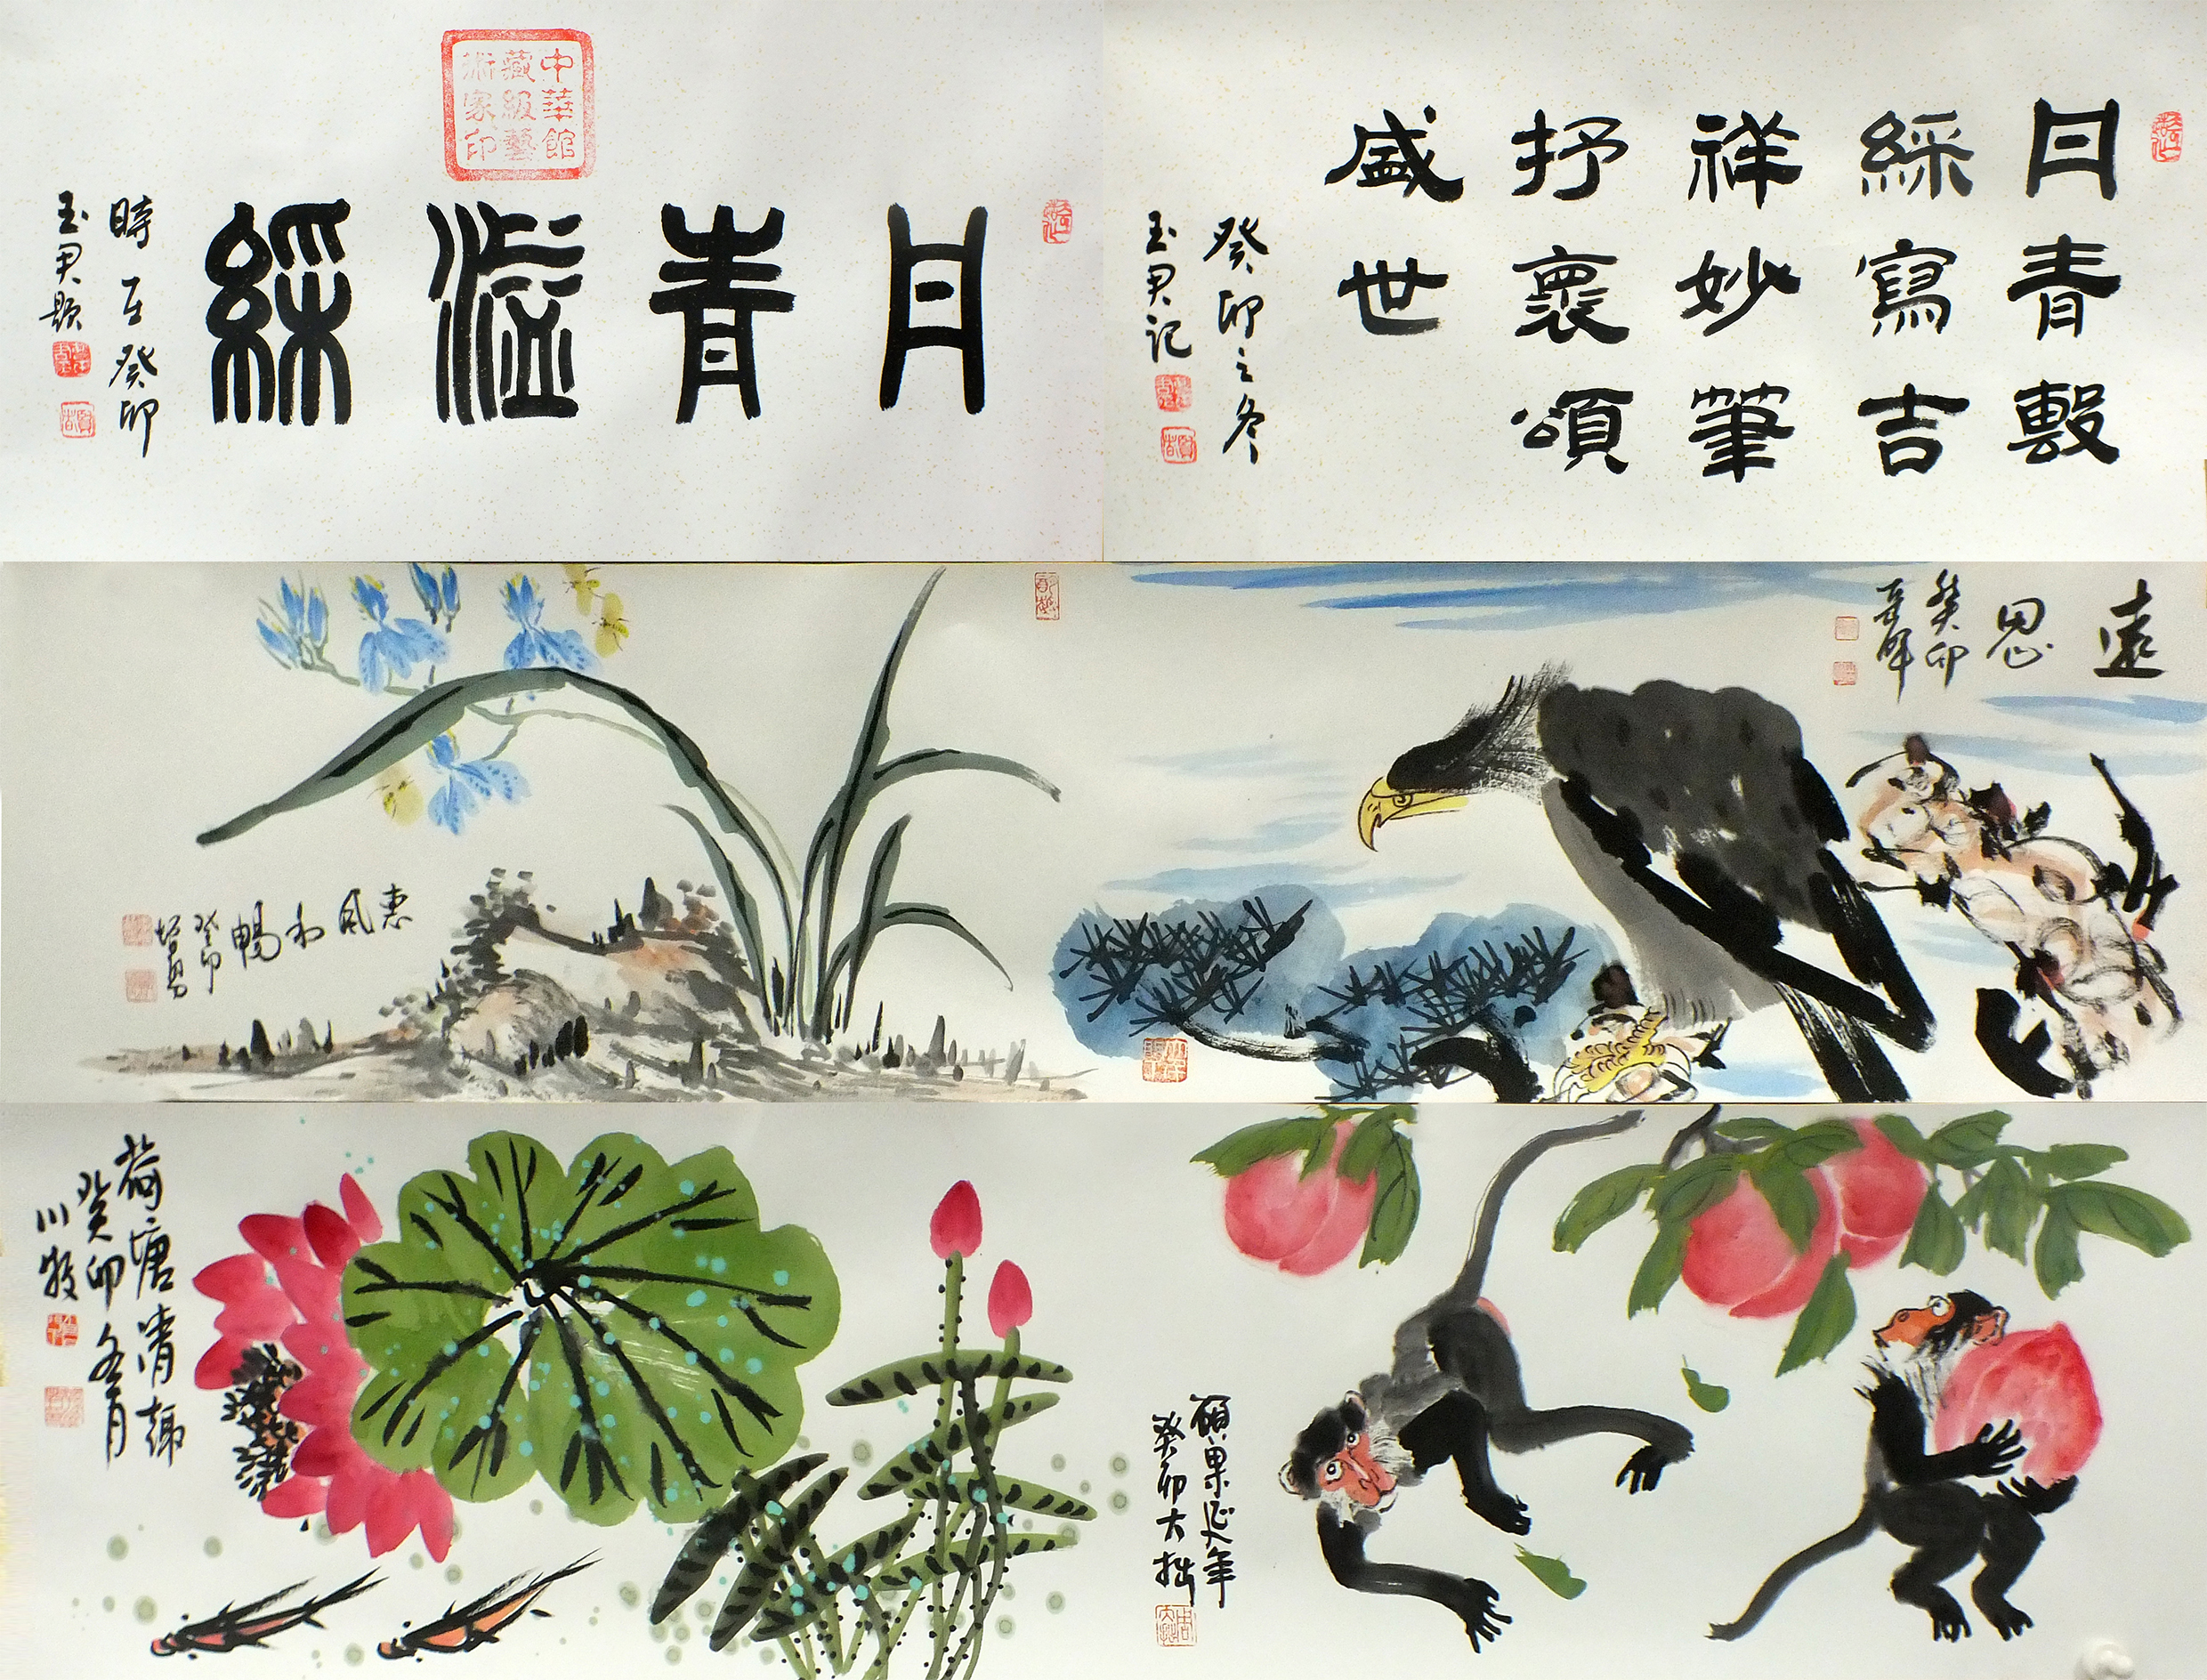 中華館
藏級藝
術家印
丹青溢綵
時在癸卯
玉君題
丹青
綵寫吉
祥妙筆
抒褱頌
盛世
癸卯之冬
玉君记
惠风和暢
癸卯
遠思
癸卯
荷塘清趣
癸卯冬月
川牧
碩果延年
癸卯大拙